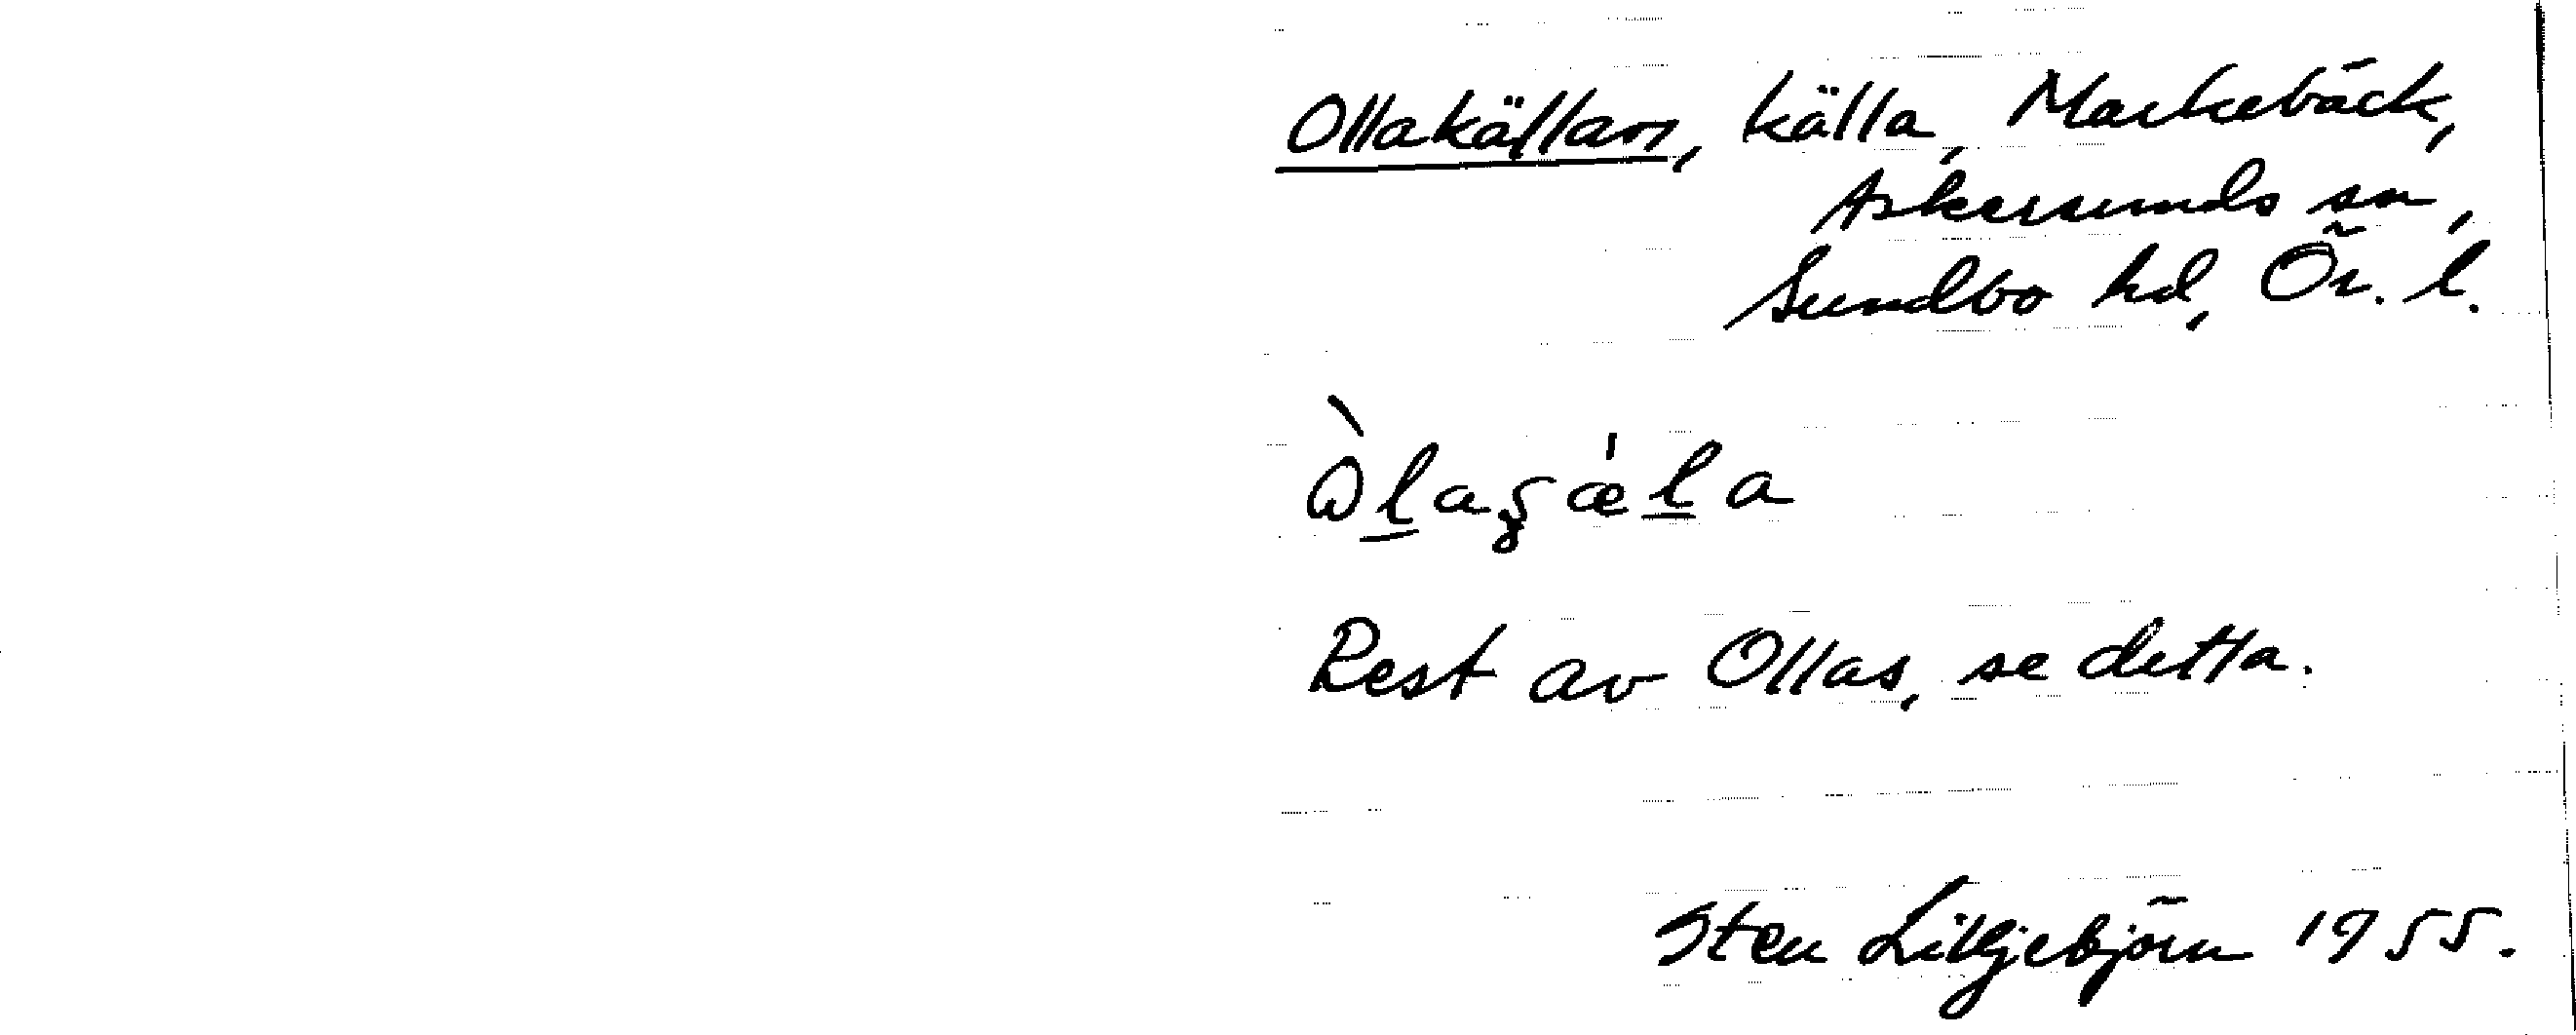 Ollakällan, källa, Markebäck,
Askersunds sn,
Sundbo hd, Ör. l.
Rest av Ollas, se detta.
Sten Lilljebjörn 1955.